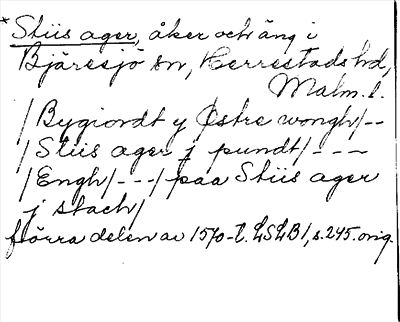 *Stiis ager, åker och äng i
Bjäresjö sn, Herrestads hd,
Malm. l.
/Bygiordt y Østre wongh/--
/Stiis ager j pundt/---
/Engh/---/paa Stiis ager
j stach/
förra delen av 1570-t. LSLB1, s. 245. orig.